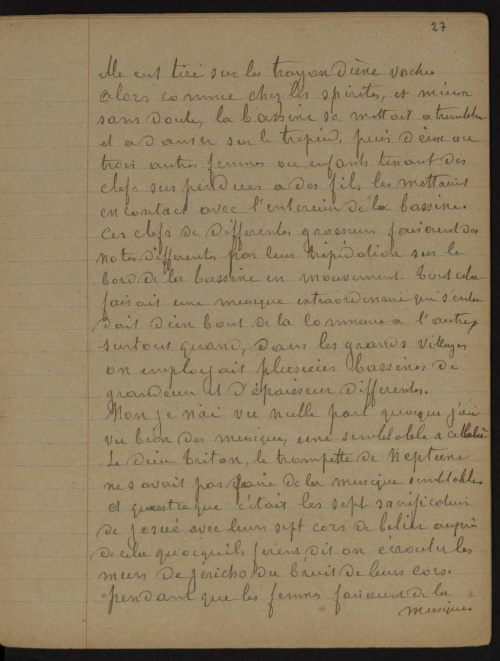 27
elle eut tiré sur les trayon d'ùne vache
alors comme chez les spirites, et mieux
sans doute, la bassine se mettait a trembler
et a danser sur le trepied, puis deùx ou
trois autres femmes ou enfants tenant des
clefs suspendues a des fils les mettaient
en contact avec l'interieur de la bassine.
ces clefs de differentes grosseurs faisaient des
notes differentes par leur trépidation sur le
bord de la bassine en mouvement. tout cela
faisait une musique extraordinaire qui s'enten
dait d'ùn bout de la commune a l'autre,
surtout quand, dans les grands villages
on employait plusieurs bassines de
grandeur et d'épaisseur differentes.
Mon je n'ai vu nulle part quoique j'ai
vu bien des musiques, une semblable a
Le dieu triton, le trompette de Neptune
ne savait pas faire de la musique semblable
et qu'est que c'était les sept sacrificateurs
de josué avec leurs sept cors de belier auprès
de cela quoequ'ils firent dit on écrouler les
murs de jéricho du bruit de leurs cors.
pendant que les femmes faisaient de la
musique